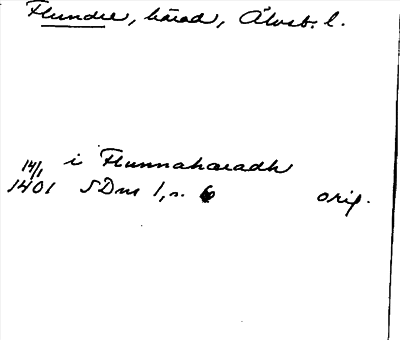 Flundre, härad, Älvsb. l.
14/1 i Flunnahæradh
1401 SDns 1, s. 6 orig.